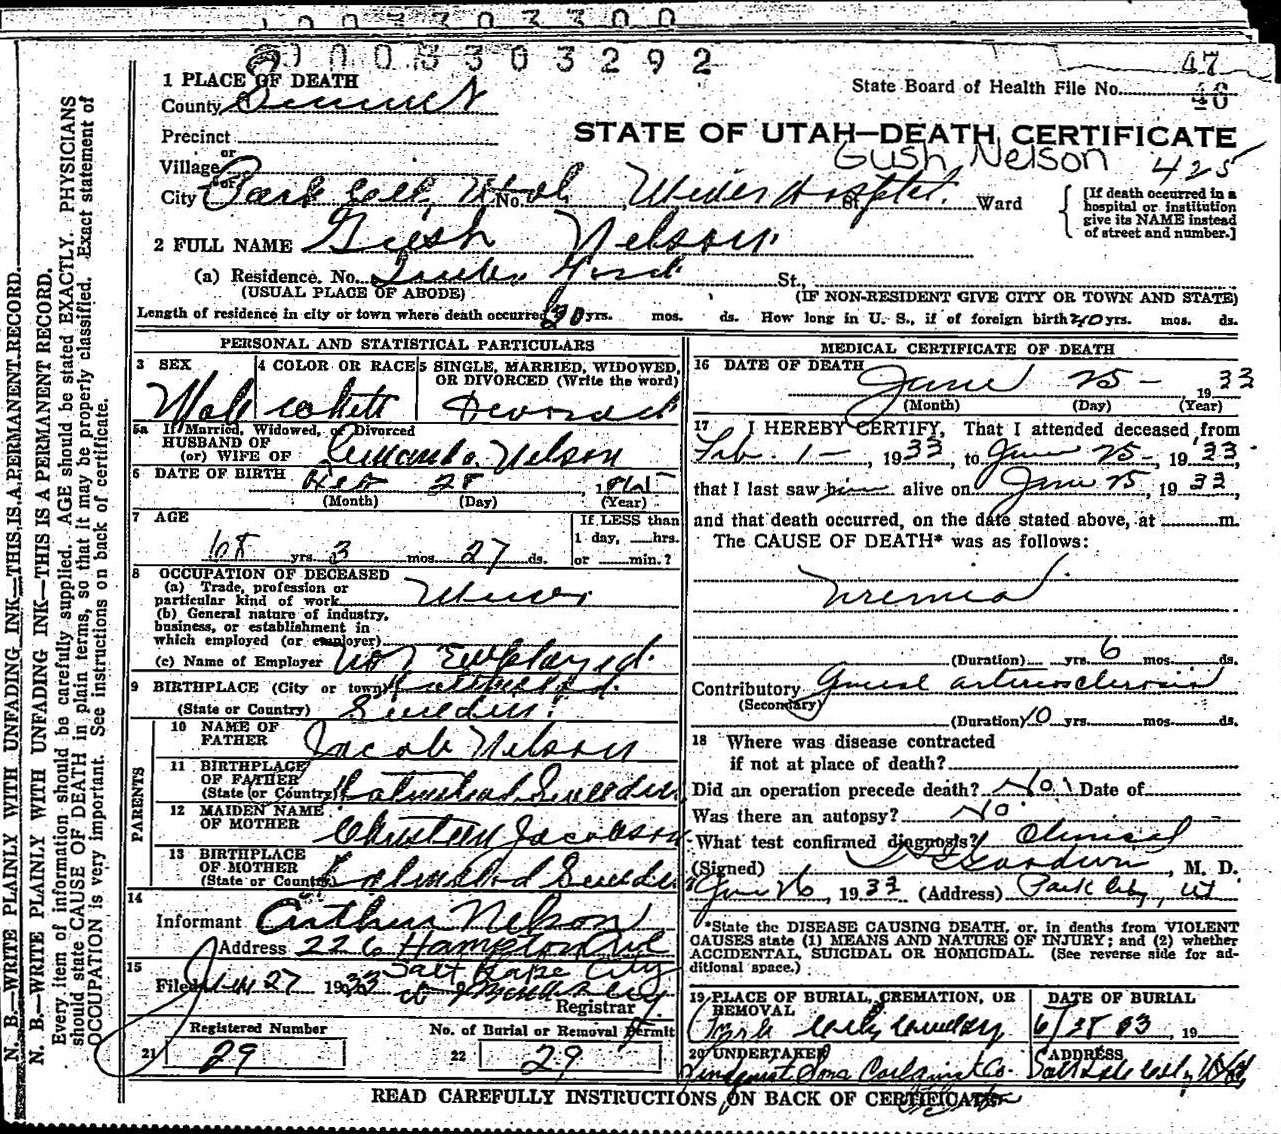 1003303300
1003303292
47
46
1 PLACE OF DEATH
County Summit
State Board of Health File No.
Precinct
STATE OF UTAH—DEATH CERTIFICATE
Gush Nelson 425
or
Village
or
City Park City, Utah No. Miners Hospital. St. Ward
[If death occurred in a hospital or institution give its NAME instead of street and number.]
2 FULL NAME Gush Nelson
(a) Residence. No. St.,
(USUAL PLACE OF ABODE) (IF NON-RESIDENT GIVE CITY OR TOWN AND STATE)
Length of residence in city or town where death occurred 30 yrs. mos. ds. How long in U. S., if of foreign birth 40 yrs. mos. ds.
PERSONAL AND STATISTICAL PARTICULARS
3 SEX
Male
4 COLOR OR RACE
White
5 SINGLE, MARRIED, WIDOWED, OR DIVORCED (Write the word)
Divorced
5a If Married, Widowed, or Divorced
HUSBAND OF
(or) WIFE OF Amanda Nelson
6 DATE OF BIRTH 28, 1865
(Month) (Day) (Year)
7 AGE
68 yrs. 3 mos. 27 ds.
If LESS than
1 day, hrs.
or min.?
8 OCCUPATION OF DECEASED
(a) Trade, profession or
particular kind of work Miner
(b) General nature of industry,
business, or establishment in
which employed (or employer)
(c) Name of Employer Not Employed.
9 BIRTHPLACE (City or town)
(State or Country) Sweden.
PARENTS
10 NAME OF
FATHER Jacob Nelson
11 BIRTHPLACE
OF FATHER
(State or Country) Sweden
12 MAIDEN NAME
OF MOTHER Jacobson
13 BIRTHPLACE
OF MOTHER
(State or Country) Sweden
14
Informant Arthur Nelson
Address 226 Hampton Ave
Salt Lake City
15
Filed 27 1933
Registrar
Registered Number
21 29
No. of Burial or Removal Permit
22 29
MEDICAL CERTIFICATE OF DEATH
16 DATE OF DEATH
June 25 - 1933
(Month) (Day) (Year)
17 I HEREBY CERTIFY, That I attended deceased from
Feb. 1 -, 1933, to June 25 -, 1933.
that I last saw him alive on June 25, 1933,
and that death occurred, on the date stated above, at m.
The CAUSE OF DEATH* was as follows:
Uremia
(Duration) yrs. 6 mos. ds.
Contributory General arteriosclerosis
(Secondary)
(Duration) 10 yrs. mos. ds.
18 Where was disease contracted
if not at place of death?
Did an operation precede death? No. Date of
Was there an autopsy? No
What test confirmed diagnosis? Clinical
(Signed) , M. D.
June 26, 1933 (Address) Park City, Ut
*State the DISEASE CAUSING DEATH, or, in deaths from VIOLENT
CAUSES state (1) MEANS AND NATURE OF INJURY; and (2) whether
ACCIDENTAL, SUICIDAL OR HOMICIDAL. (See reverse side for ad-
ditional space.)
19 PLACE OF BURIAL, CREMATION, OR
REMOVAL
Park City Cemetery
DATE OF BURIAL
6/28 33, 19
20 UNDERTAKER
ADDRESS
Salt Lake City, Utah
READ CAREFULLY INSTRUCTIONS ON BACK OF CERTIFICATE
N. B.—WRITE PLAINLY WITH UNFADING INK—THIS IS A PERMANENT RECORD.
N. B.—WRITE PLAINLY WITH UNFADING INK—THIS IS A PERMANENT RECORD.
Every item of information should be carefully supplied. AGE should be stated EXACTLY. PHYSICIANS
should state CAUSE OF DEATH in plain terms, so that it may be properly classified. Exact statement of
OCCUPATION is very important. See instructions on back of certificate.